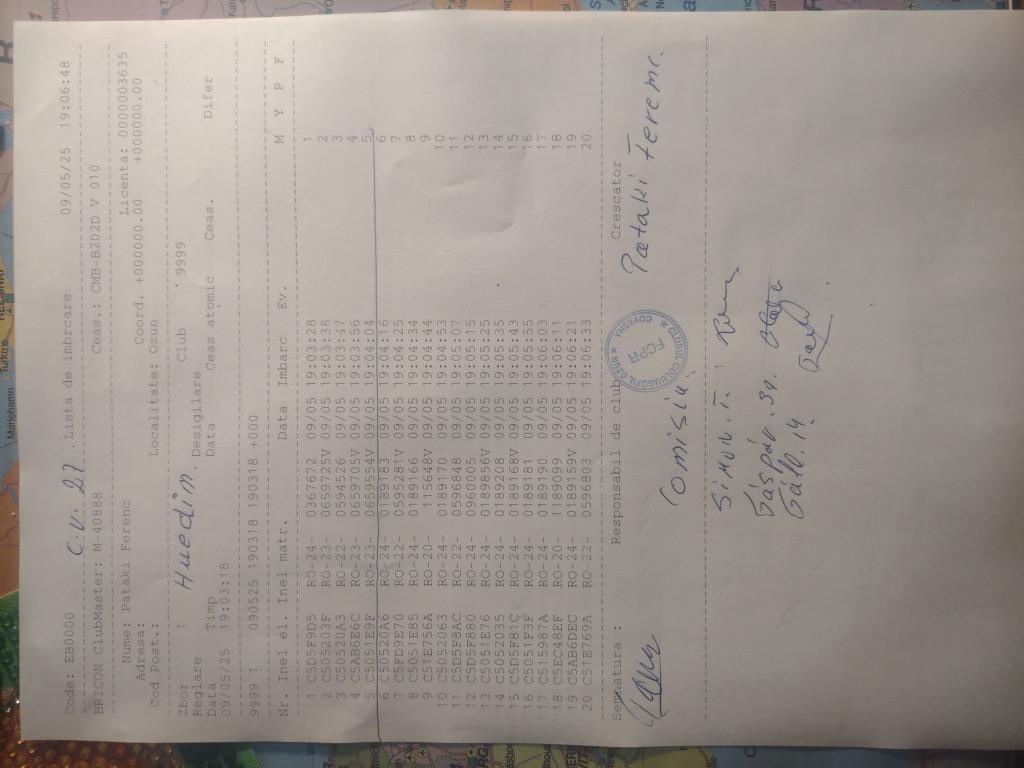 Code: EB0000 C.V. 27 Lista de imbrcare 09/05/25 19:06:48
BRICON ClubMaster: M-40888 Ceas.: CMB-B202D V 010
Nume: Pataki Ferenc Licenta: 0000003635
Adresa: Coord. +000000.00 +000000.00
Cod Post.: Localitate: Ozun
Zbor 1 Huedin. Club 9999
Reglare Desigilare
Data Timp Data Ceas atomic Ceas. Difer
09/05/25 19:03:18
9999 1 090525 190318 190318 +000
Nr. Inel el. Inel matr. Data Imbarc Ev. M Y P F
1 C5D5F9D5 RO-24- 0367672 09/05 19:03:28 1
2 C505203F RO-23- 0659725V 09/05 19:03:38 2
3 C50520A3 RO-22- 0594526 09/05 19:03:47 3
4 C5AB6E6C RO-23- 0659705V 09/05 19:03:56 4
5 C5051E9F RO-23- 0659554V 09/05 19:04:04 5
6 C50520A6 RO-24- 0189183 09/05 19:04:16 6
7 C5FD9E70 RO-22- 0595281V 09/05 19:04:25 7
8 C5051E85 RO-24- 0189166 09/05 19:04:34 8
9 C51E756A RO-20- 115648V 09/05 19:04:44 9
10 C5052063 RO-24- 0189170 09/05 19:04:53 10
11 C5D5F8AC RO-22- 0596848 09/05 19:05:07 11
12 C5D5F880 RO-24- 0960005 09/05 19:05:15 12
13 C5051E7E RO-24- 0189856V 09/05 19:05:25 13
14 C5052035 RO-24- 0189208 09/05 19:05:35 14
15 C5D5F81C RO-24- 0189168V 09/05 19:05:43 15
16 C5051F3F RO-24- 0189181 09/05 19:05:55 16
17 C515987A RO-24- 0189190 09/05 19:06:03 17
18 C5EC48EF RO-20- 1189099 09/05 19:06:11 18
19 C5AB6DEC RO-24- 0189159V 09/05 19:06:21 19
20 C51E769A RO-22- 0596803 09/05 19:06:33 20
Semnatura : Responsabil de club Crescator
FCPR
COVASNA
Pataki Ferenc.
Comisia:
Simon. T.
Gáspár.
Gál.